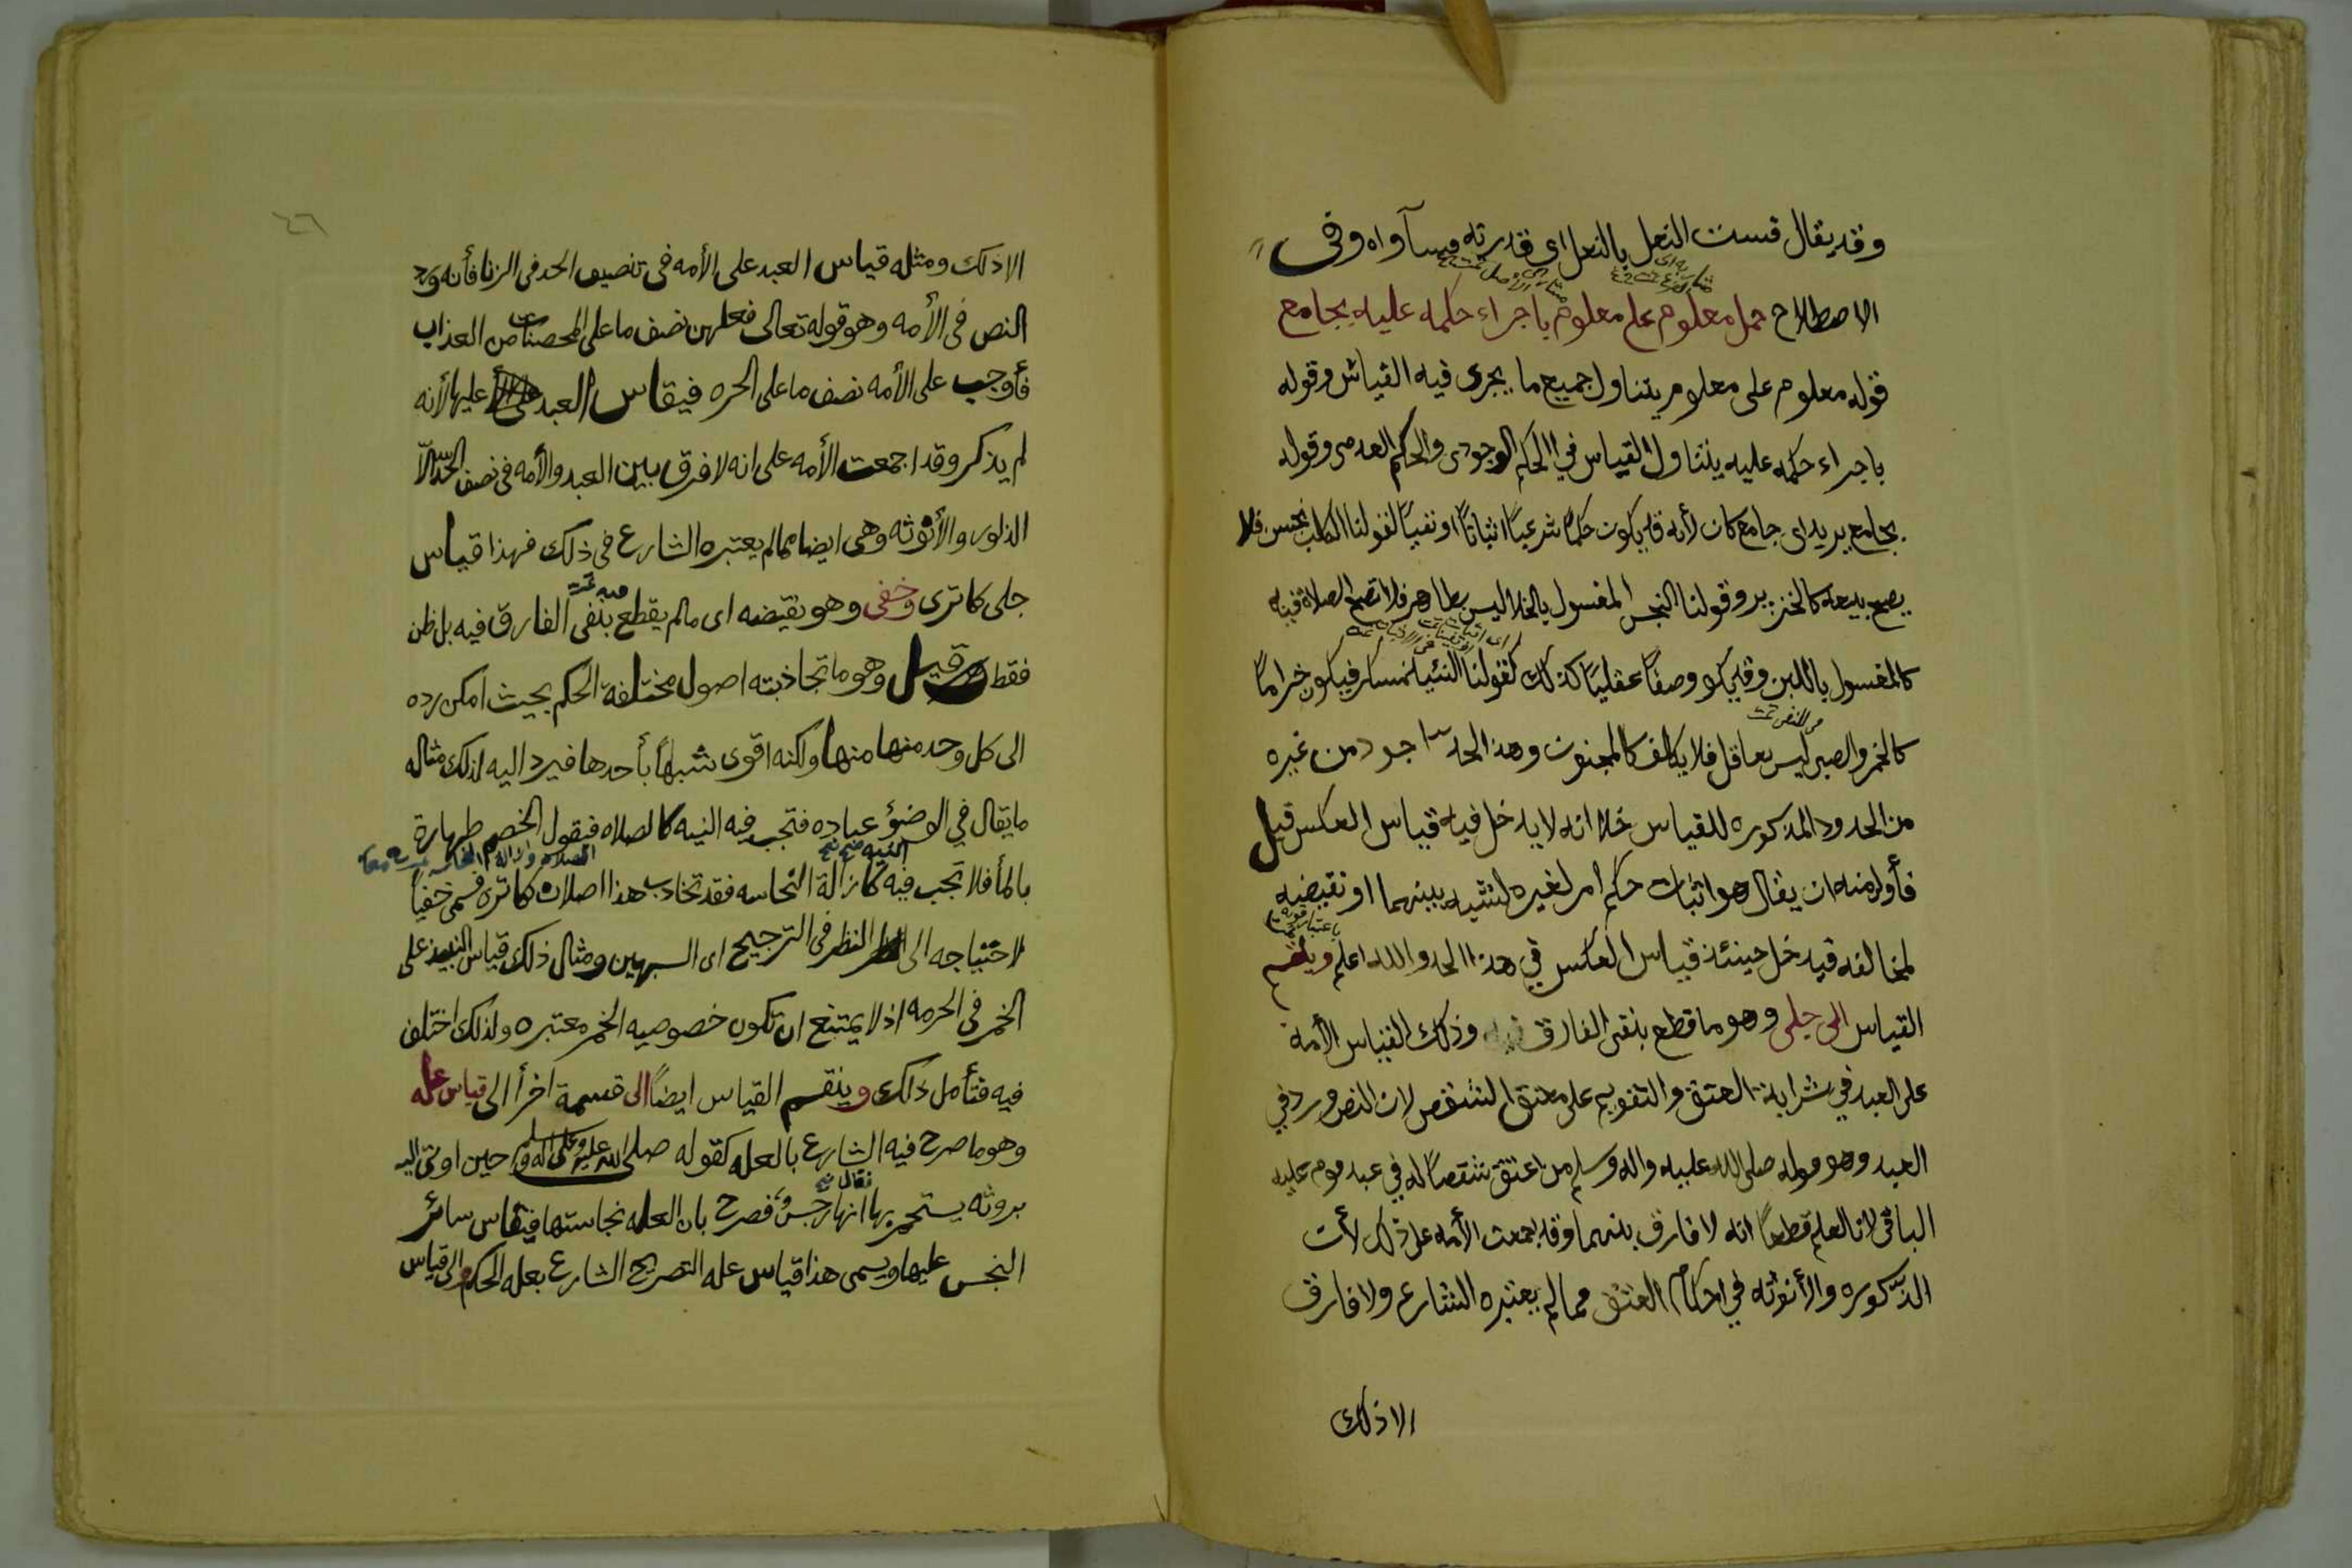 وقد يقال قست النعل بالنعل اى قدرته وسآواه وفى
الاصطلاح حمل معلوم على معلوم باجراء حكمه عليه بجامع
قوله معلوم على معلوم يتناول جميع ما يجرى فيه القياس وقوله
باجراء حكمه عليه يتناول القياس في الحكم الوجودى والحكم العدمى وقوله
بجامع يريد اى جامع كان لأنه قد يكون حكمًا شرعيًا اثباتًا او نفيًا كقولنا الكلب نجس فلا
يصح بيعه كالخنزير وقولنا النجس المغسول بالخل ليس بطاهر فلا تصح الصلاة فيه
كالمغسول باللبن وقد يكو وصفًا عقليًا كذلك كقولنا النبيذ مسكر فيكون حرامًا
من النص تمت
كالخمر والصبى ليس بعاقل فلا يكلف كالمجنون وهذا الحد اجود من غيره
من الحدود المذكوره للقياس خلا انه لا يدخل فيه قياس العكس قيل
فأولى منه ان يقال هو اثبات حكم امر لغيره لشبه بينهما او نقيضه
لمخالفه فيدخل حينئذ قياس العكس في هذا الحد والله اعلم وينقسم
القياس الى جلى وهو ما قطع بنفى الفارق فيه وذلك القياس الأمة
على العبد في سراية العتق والتقويم على معتق الشقص لان النص ورد في
العبد وهو قوله صلى الله عليه واله وسلم من اعتق شقصًا له في عبد قوم عليه
الباقى لانا نعلم قطعًا انه لا فارق بينهما وقد اجمعت الأمه على ذلك لأن
الذكوره والأنوثه في احكام العتق مما لم يعتبره الشارع ولا فارق
الا ذلك
٤٦
الا ذلك ومثله قياس العبد على الأمه فى تنصيف الحد فى الزنا فأنه ورد
النص فى الأمه وهو قوله تعالى فعليهن نصف ما على المحصنات من العذاب
فأوجب على الأمه نصف ما على الحره فيقاس العبد عليها لأنه
لم يذكر وقد اجمعت الأمه على انه لا فرق بين العبد والأمه فى نصف الحد الّا
الذكوره والأنوثه وهى ايضا مما لم يعتبره الشارع فى ذلك فهذا قياس
جلى كما ترى وخفى وهو نقيضه اى مالم يقطع بنفى الفارق فيه بل ظن
فقط وقيل وهو ما تجاذبته اصول مختلفة الحكم بحيث امكن رده
الى كل وحد منها منها ولكنه اقوى شبهًا بأحدها فيرد اليه لذلك مثاله
ما يقال في الوضؤ عباده فتجب فيه النيه كالصلاه فيقول الخصم طهارة
النيه صح
بالمأ فلا تجب فيه كازالة النجاسه فقد تجاذب هذا اصلان كما ترى فسمى خفيًا
لاحتياجه الى النظر فى الترجيح اى الشبهين ومثال ذلك قياس النبيذ على
الخمر فى الحرمه اذ لا يمتنع ان تكون خصوصيه الخمر معتبره ولذلك اختلف
فيه فتأمل ذلك وينقسم القياس ايضًا الى قسمة اخرأ الى قياس عله
وهو ما صرح فيه الشارع بالعله كقوله صلى الله عليه وعلى اله وسلم حين اوتى اليه
بروثه يستجمر بها انها رجس فصرح بان العله نجاستها فيقاس سائر
النجس عليها ويسمى هذا قياس عله التصريح الشارع بعله الحكم والى قياس